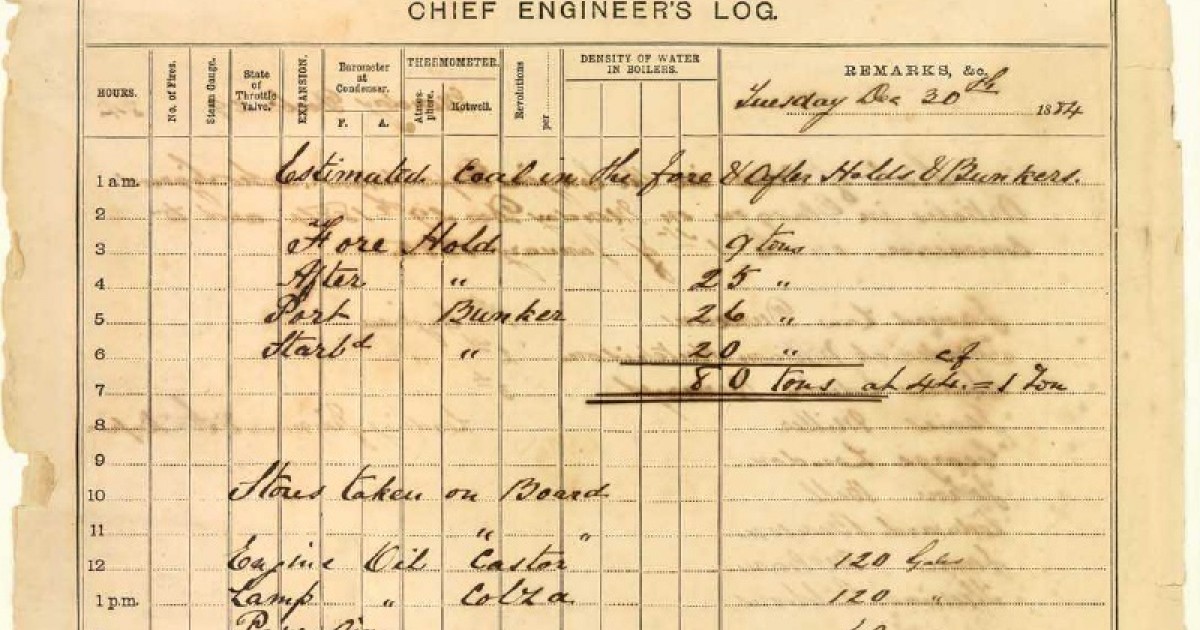 CHIEF ENGINEER'S LOG.
HOURS.
No. of Fires.
Steam Gauge.
State of Throttle Valve.
EXPANSION.
Barometer at Condenser.
F. A.
THERMOMETER.
Atmosphere.
Hotwell.
Revolutions per
DENSITY OF WATER IN BOILERS.
REMARKS, &c.
Tuesday Dec 30th 1884
1 a.m. Estimated Coal in the fore & After Holds & Bunkers.
2
3 Fore Hold 9 tons
4 After " 25 "
5 Port Bunker 26 "
6 Starbd " 20 " cf
7 80 tons at 44. = 1 Ton
8
9
10 Stores taken on Board
11 " "
12 Engine Oil Castor 120 Gals
1 p.m. Lamp " Colza 120 "